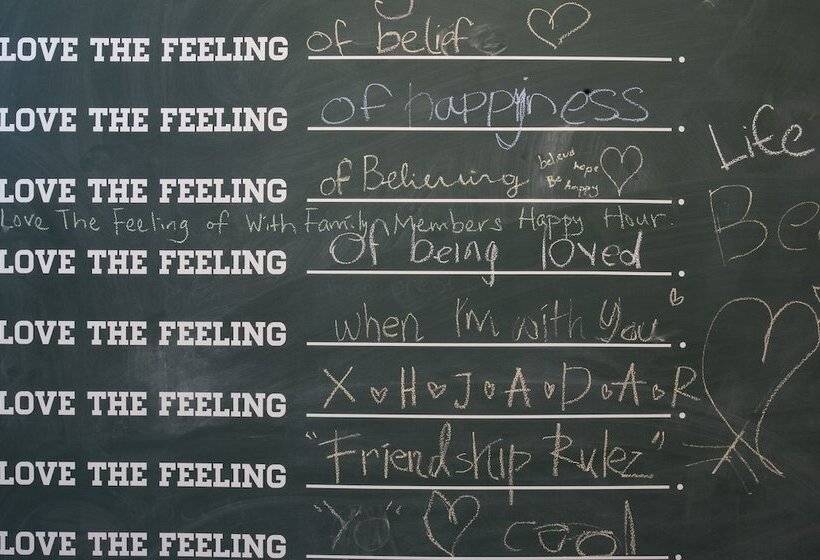 LOVE THE FEELING of belief
LOVE THE FEELING of happiness
Life
LOVE THE FEELING of Believing believe hope Be happy
Love The Feeling of With Family Members Happy Hour.
LOVE THE FEELING Of being loved
LOVE THE FEELING when I'm with You
LOVE THE FEELING X H J A D A R
LOVE THE FEELING "Friendship Rulez"
LOVE THE FEELING cool